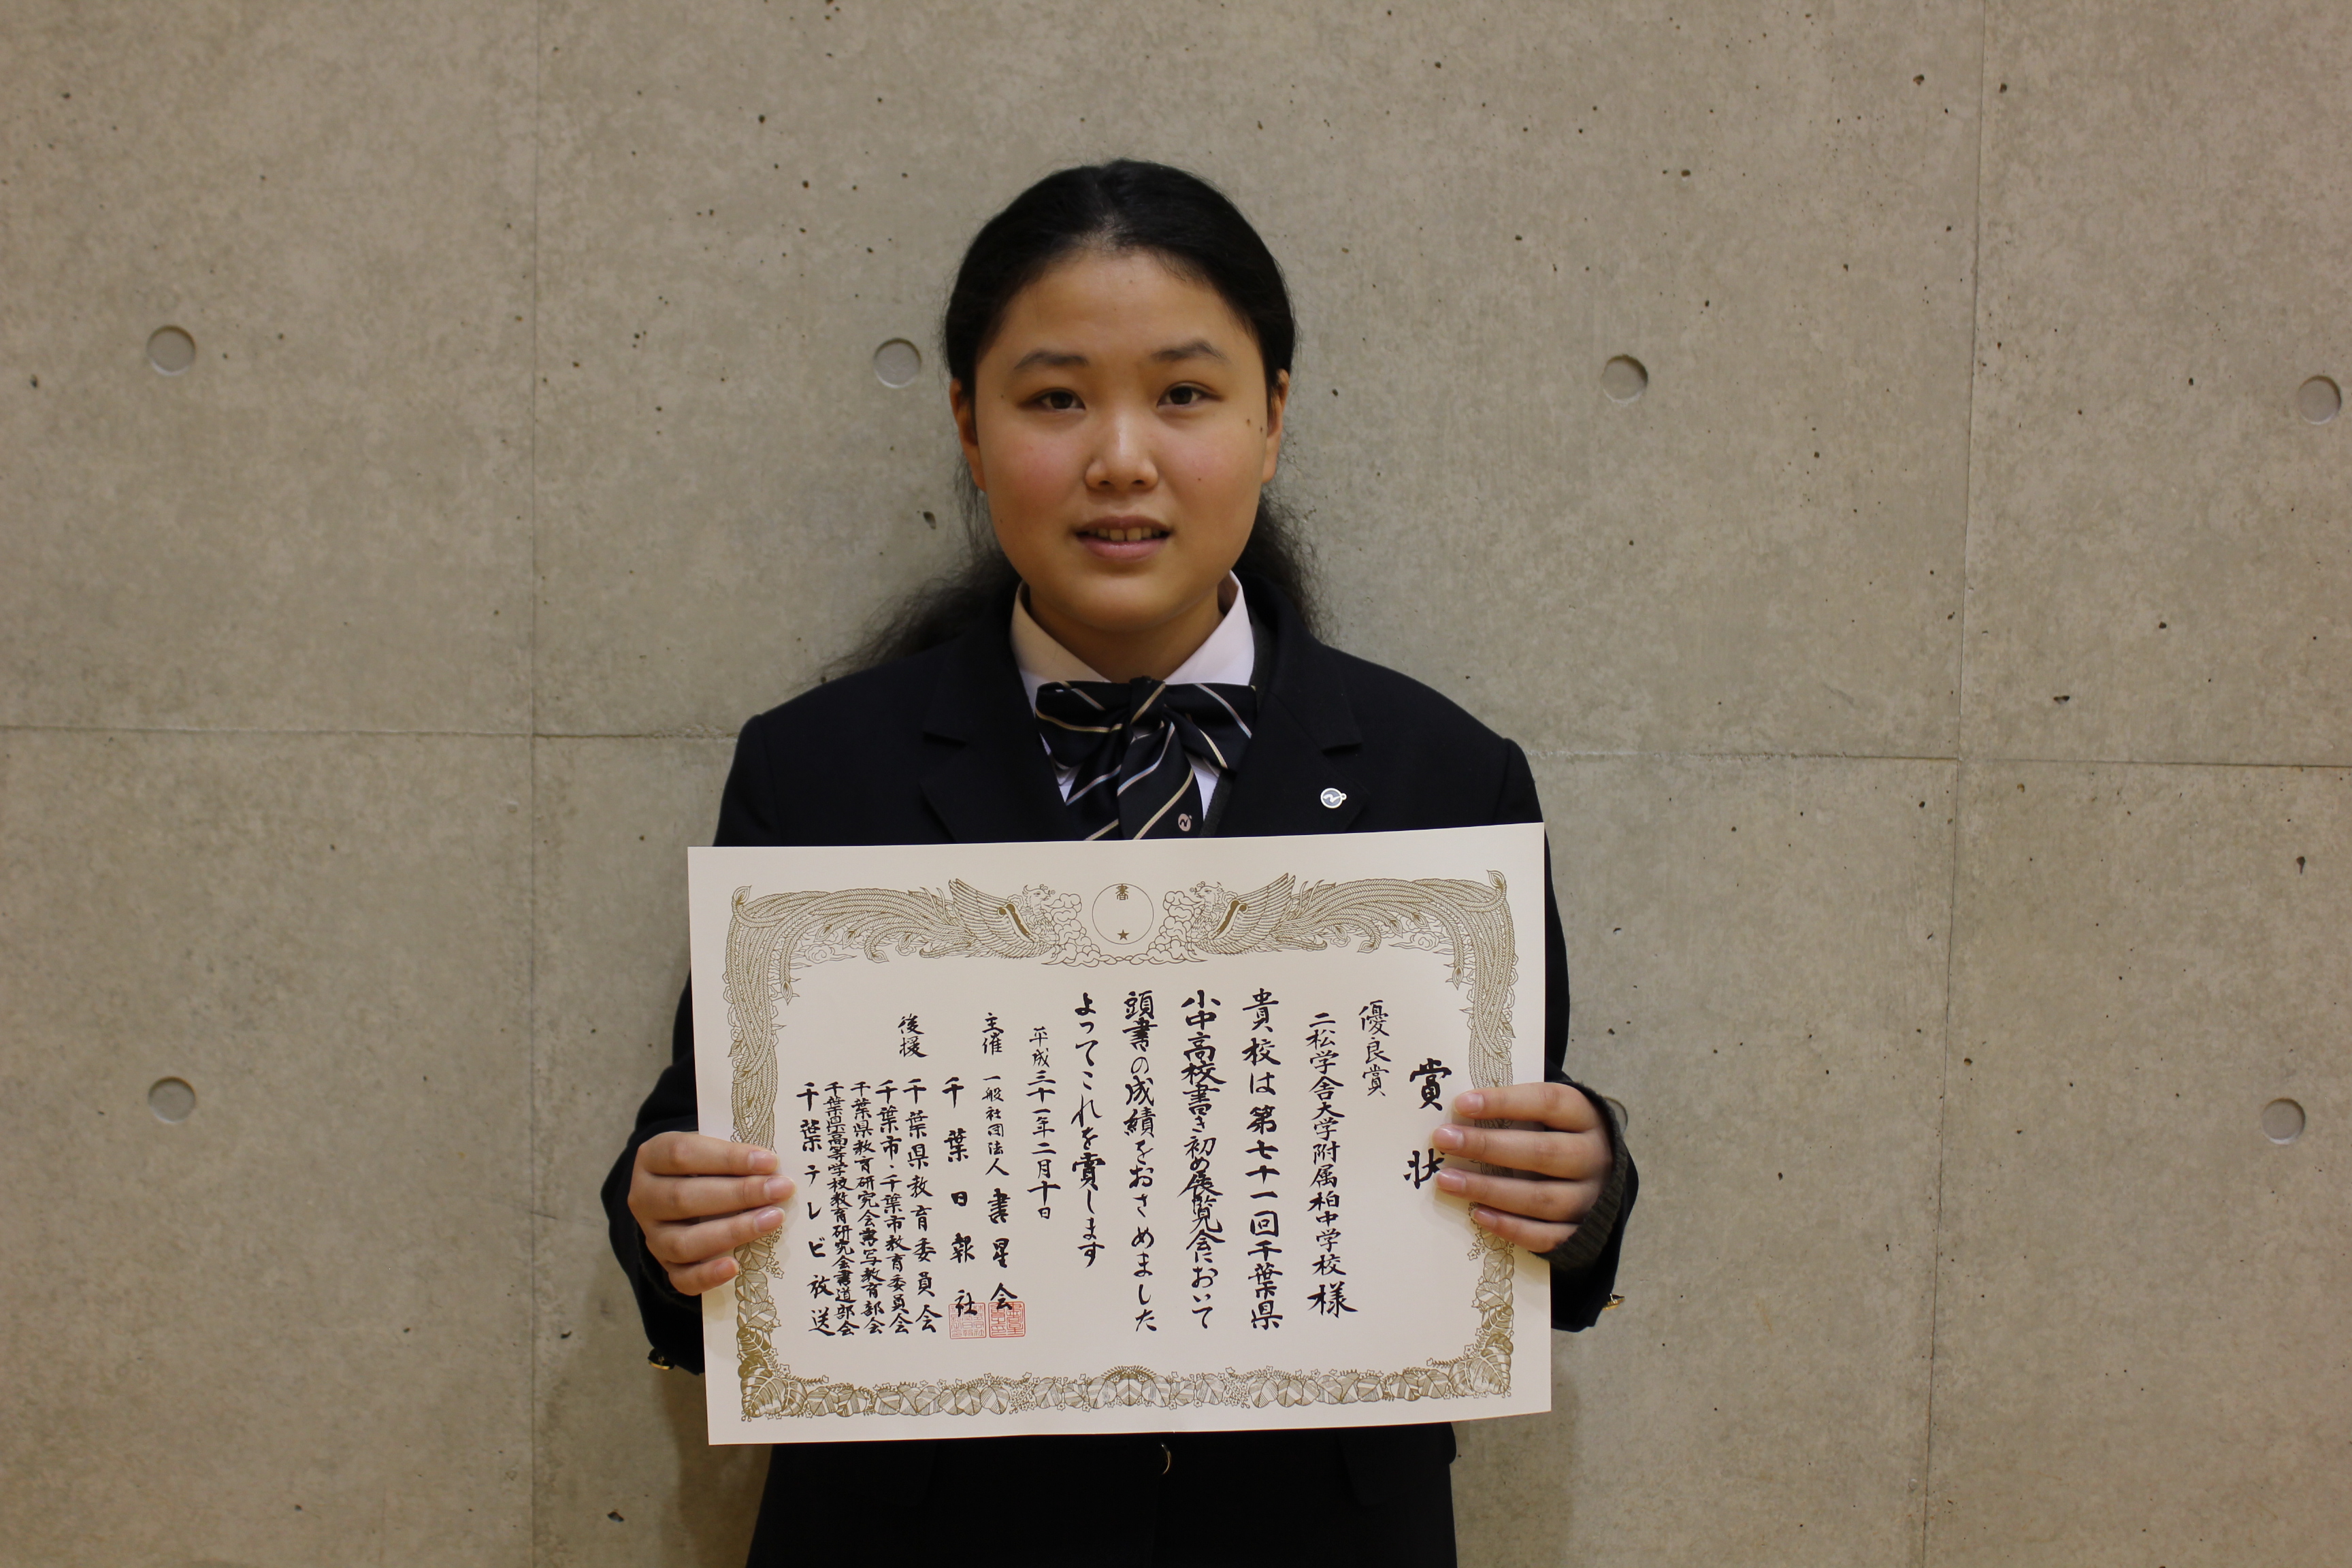 賞状
優良賞
二松学舎大学附属柏中学校様
貴校は第七十一回千葉県
小中高校書き初め展覧会において
頭書の成績をおさめました
よってこれを賞します
平成三十一年二月十日
主催 一般社団法人 書星会
千葉日報社
後援 千葉県教育委員会
千葉市・千葉市教育委員会
千葉県教育研究会書写教育部会
千葉県高等学校教育研究会書道部会
千葉テレビ放送
書